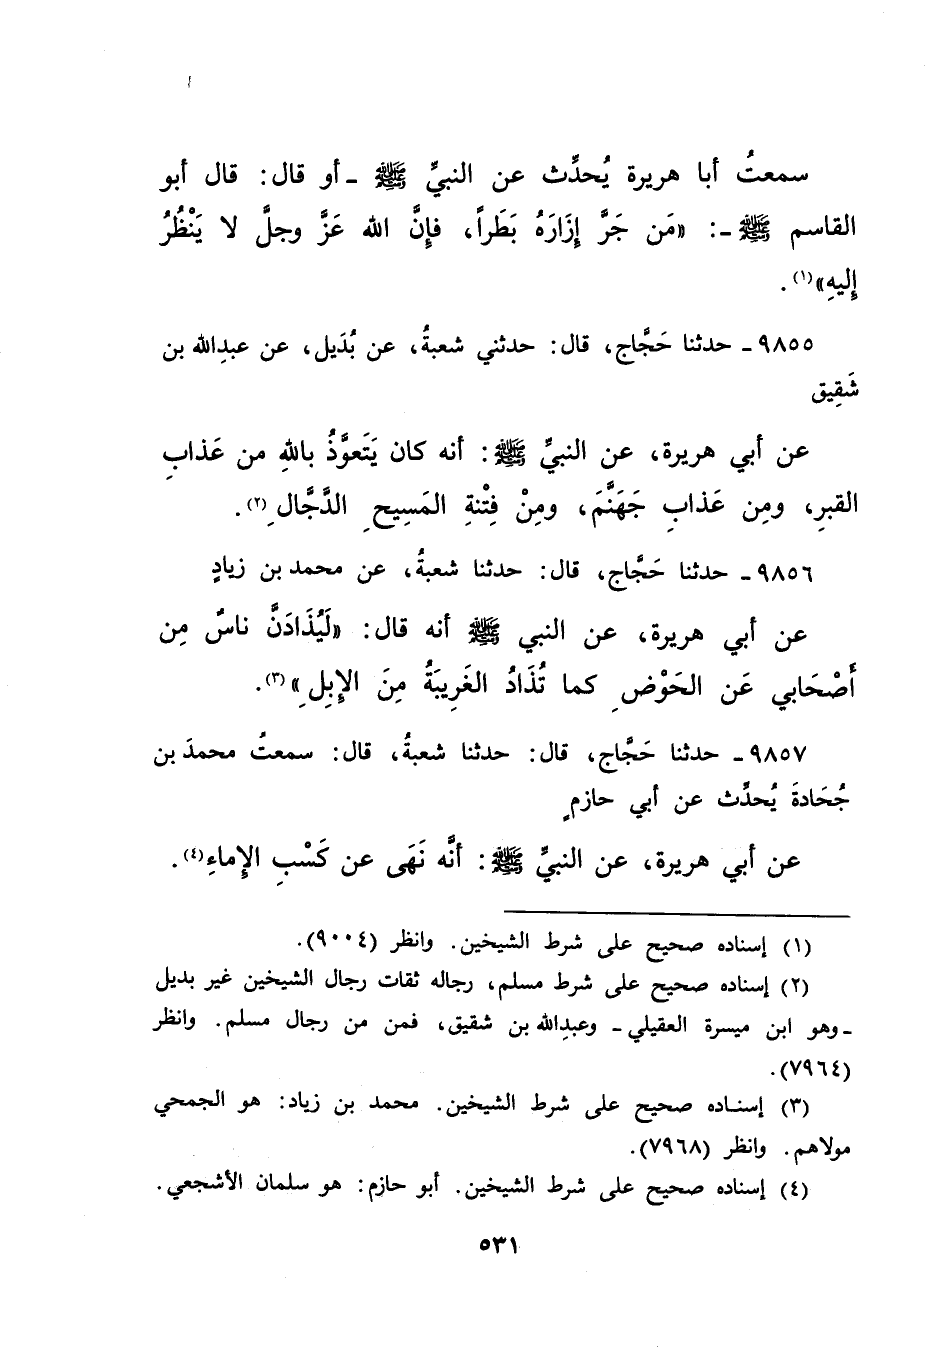 سمعتُ أبا هريرة يُحدِّث عن النبيِّ ﷺ ـ أو قال: قال أبو
القاسم ﷺ ـ: «مَن جَرَّ إزَارَهُ بَطَراً، فإنَّ الله عَزَّ وجلَّ لا يَنْظُرُ
إليهِ»(١).
٩٨٥٥ـ حدثنا حَجَّاج، قال: حدثني شعبةُ، عن بُدَيل، عن عبدِالله بن
شَقِيق
عن أبي هريرة، عن النبيِّ ﷺ: أنه كان يَتَعوَّذُ باللهِ من عَذابِ
القبرِ، ومِن عَذابِ جَهَنَّمَ، ومِنْ فِتْنةِ المَسِيحِ الدَّجَّالِ(٢).
٩٨٥٦ـ حدثنا حَجَّاج، قال: حدثنا شعبةُ، عن محمد بن زيادٍ
عن أبي هريرة، عن النبي ﷺ أنه قال: «لَيُذَادَنَّ ناسٌ مِن
أَصْحَابي عَن الحَوْضِ كما تُذَادُ الغَرِيبَةُ مِنَ الإِبِلِ»(٣).
٩٨٥٧ـ حدثنا حَجَّاج، قال: حدثنا شعبةُ، قال: سمعتُ محمدَ بن
جُحَادةَ يُحدِّث عن أبي حازمٍ
عن أبي هريرة، عن النبيِّ ﷺ: أنَّه نَهَى عن كَسْبِ الإِماءِ(٤).
(١) إسناده صحيح على شرط الشيخين. وانظر (٩٠٠٤).
(٢) إسناده صحيح على شرط مسلم، رجاله ثقات رجال الشيخين غير بديل
ـ وهو ابن ميسرة العقيلي ـ وعبدِالله بن شقيق، فمن من رجال مسلم. وانظر
(٧٩٦٤).
(٣) إسناده صحيح على شرط الشيخين. محمد بن زياد: هو الجمحي
مولاهم. وانظر (٧٩٦٨).
(٤) إسناده صحيح على شرط الشيخين. أبو حازم: هو سلمان الأشجعي.
٥٣١